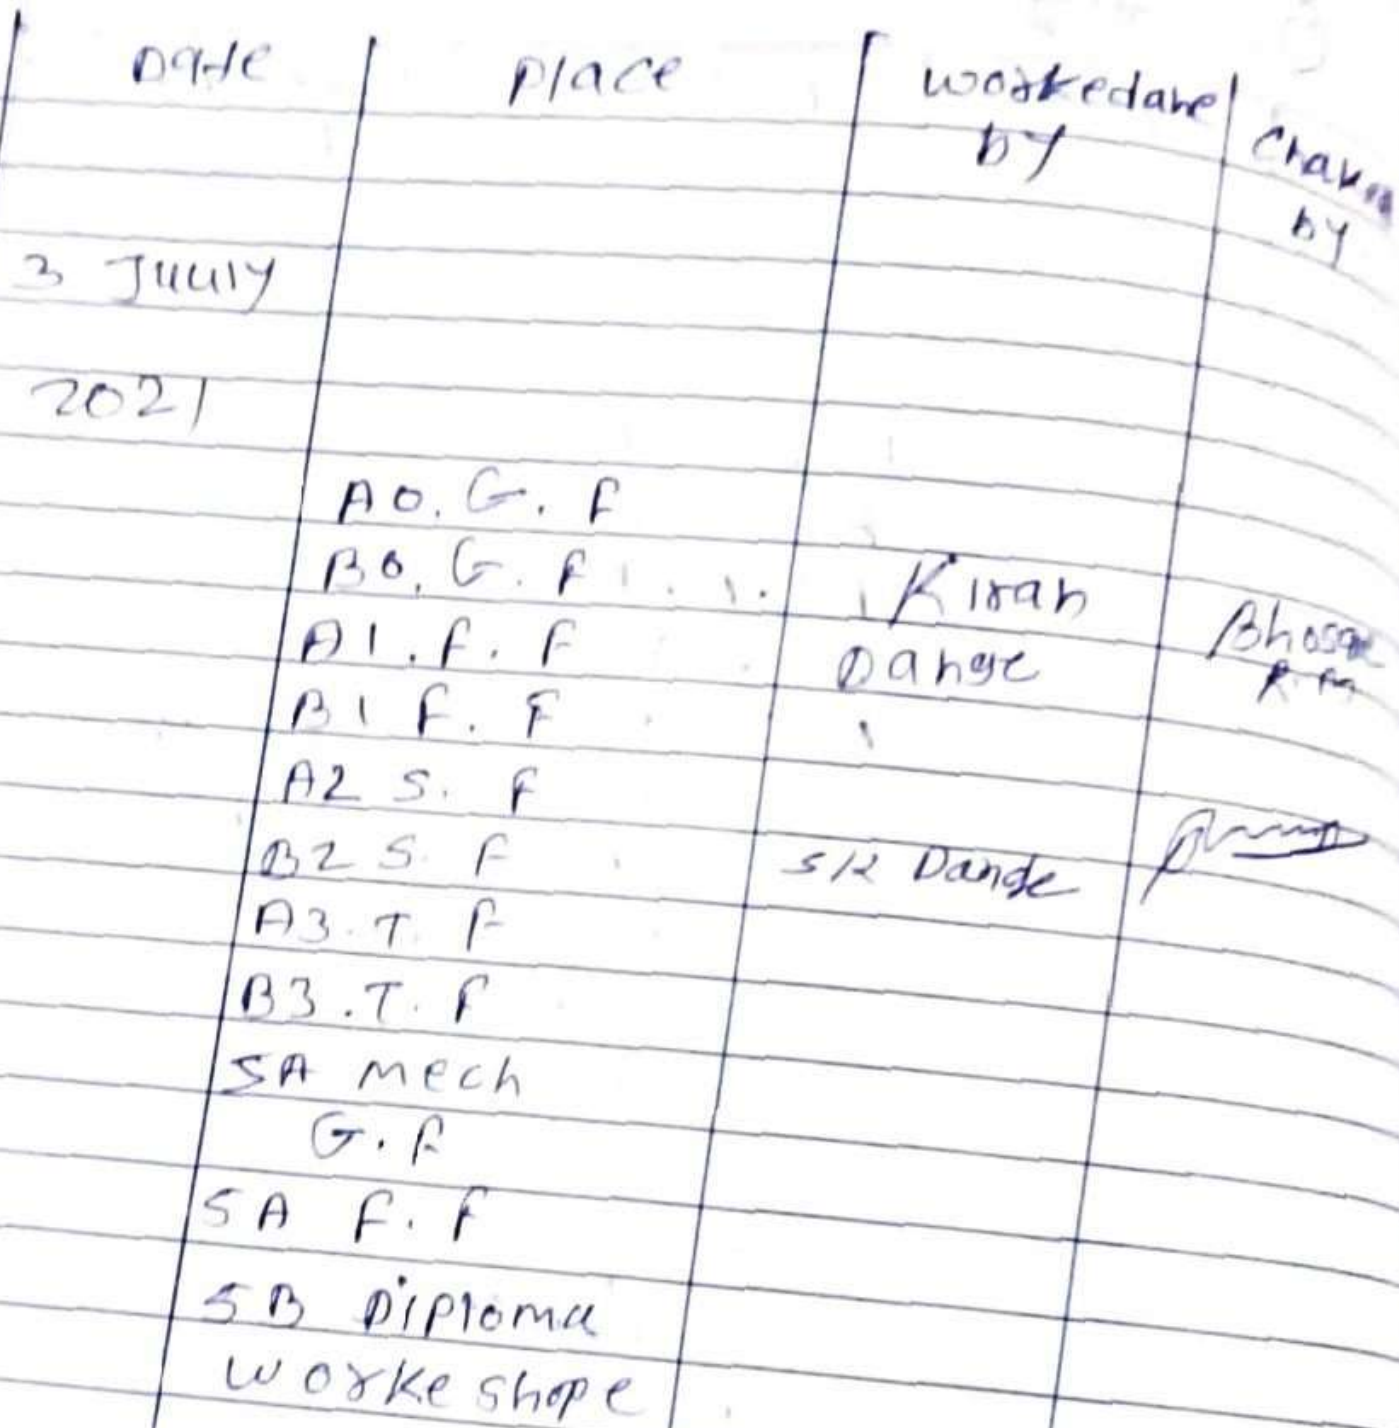 Date place workedane
by
by
3 Juuly
2021
A0. G. F
B0. G. F Kiran
A1. F. F Dange
B1 F. F
A2 S. F
B2 S. F SR Dange
A3. T. F
B3. T. F
5A mech
G. F
5A F. F
5B Diploma
workeshope